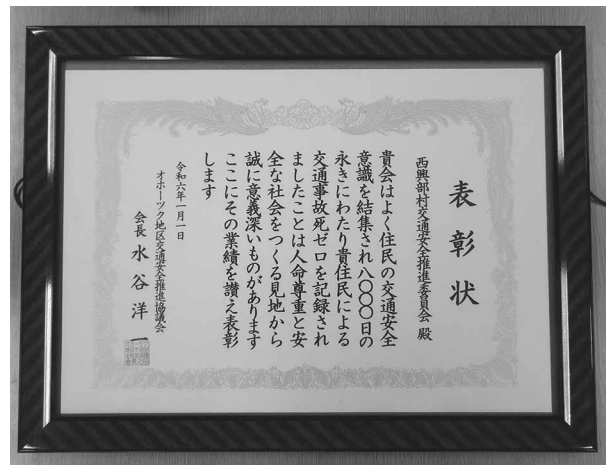 表彰状
西興部村交通安全推進委員会 殿
貴会はよく住民の交通安全
意識を結集され八〇〇〇日の
永きにわたり貴住民による
交通事故死ゼロを記録され
ましたことは人命尊重と安
全な社会をつくる見地から
誠に意義深いものがあります
ここにその業績を讃え表彰
します
令和六年一月一日
オホーツク地区交通安全推進協議会
会長 水谷洋一